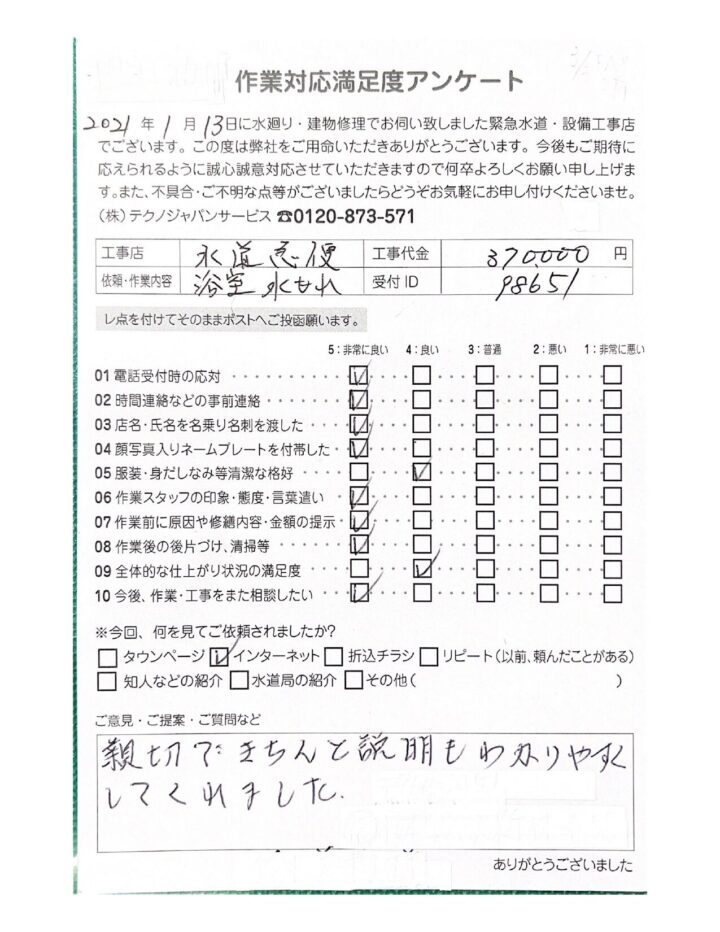 作業対応満足度アンケート
2021年1月13日に水廻り・建物修理でお伺い致しました緊急水道・設備工事店
でございます。この度は弊社をご用命いただきありがとうございます。今後もご期待に
応えられるように誠心誠意対応させていただきますので何卒よろしくお願い申し上げま
す。また、不具合・ご不明な点等がございましたらどうぞお気軽にお申し付けくださいませ。
（株）テクノジャパンサービス ☎0120-873-571
工事店 水道急便 工事代金 370,000 円
依頼・作業内容 浴室水もれ 受付ID 98651
レ点を付けてそのままポストへご投函願います。
5：非常に良い 4：良い 3：普通 2：悪い 1：非常に悪い
01 電話受付時の応対
02 時間連絡などの事前連絡
03 店名・氏名を名乗り名刺を渡した
04 顔写真入りネームプレートを付帯した
05 服装・身だしなみ等清潔な格好
06 作業スタッフの印象・態度・言葉遣い
07 作業前に原因や修繕内容・金額の提示
08 作業後の後片づけ、清掃等
09 全体的な仕上がり状況の満足度
10 今後、作業・工事をまた相談したい
※今回、何を見てご依頼されましたか？
タウンページ インターネット 折込チラシ リピート（以前、頼んだことがある）
知人などの紹介 水道局の紹介 その他（ ）
ご意見・ご提案・ご質問など
親切できちんと説明もわかりやすく
してくれました.
ありがとうございました